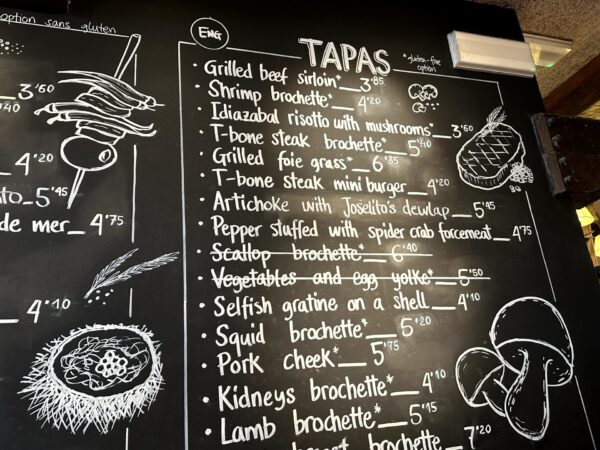 option sans gluten
3'50
'40
4'20
5'45
de mer_ 4'75
4'10
ENG
TAPAS
*gluten-free
option
· Grilled beef sirloin*__3'85
· Shrimp brochette*__4'20
· Idiazabal risotto with mushrooms*__3'50
· T-bone steak brochette*__5'40
· Grilled foie grass*__6'85
· T-bone steak mini burger__4'20
· Artichoke with Joselito's dewlap__5'45
· Pepper stuffed with spider crab forcemeat__4'75
· Scallop brochette*__6'40
· Vegetables and egg yolke*__5'50
· Selfish gratine on a shell__4'10
· Squid brochette*__5'20
· Pork cheek*__5'75
· Kidneys brochette*__4'10
· Lamb brochette*__5'15
brochette__7'20